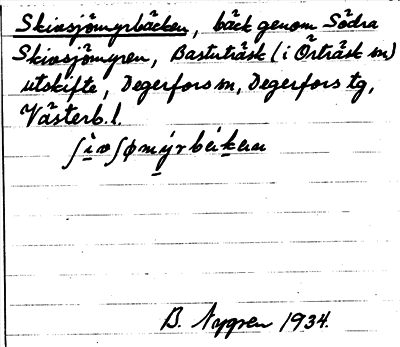 Skivsjömyrbäcken, bäck genom Södra
Skivsjömyren, Bastuträsk (i Örträsk sn)
utskifte, Degerfors sn, Degerfors tg,
Västerb. l.
ʃìvʃømýrbèkən
B. Nygren 1934.